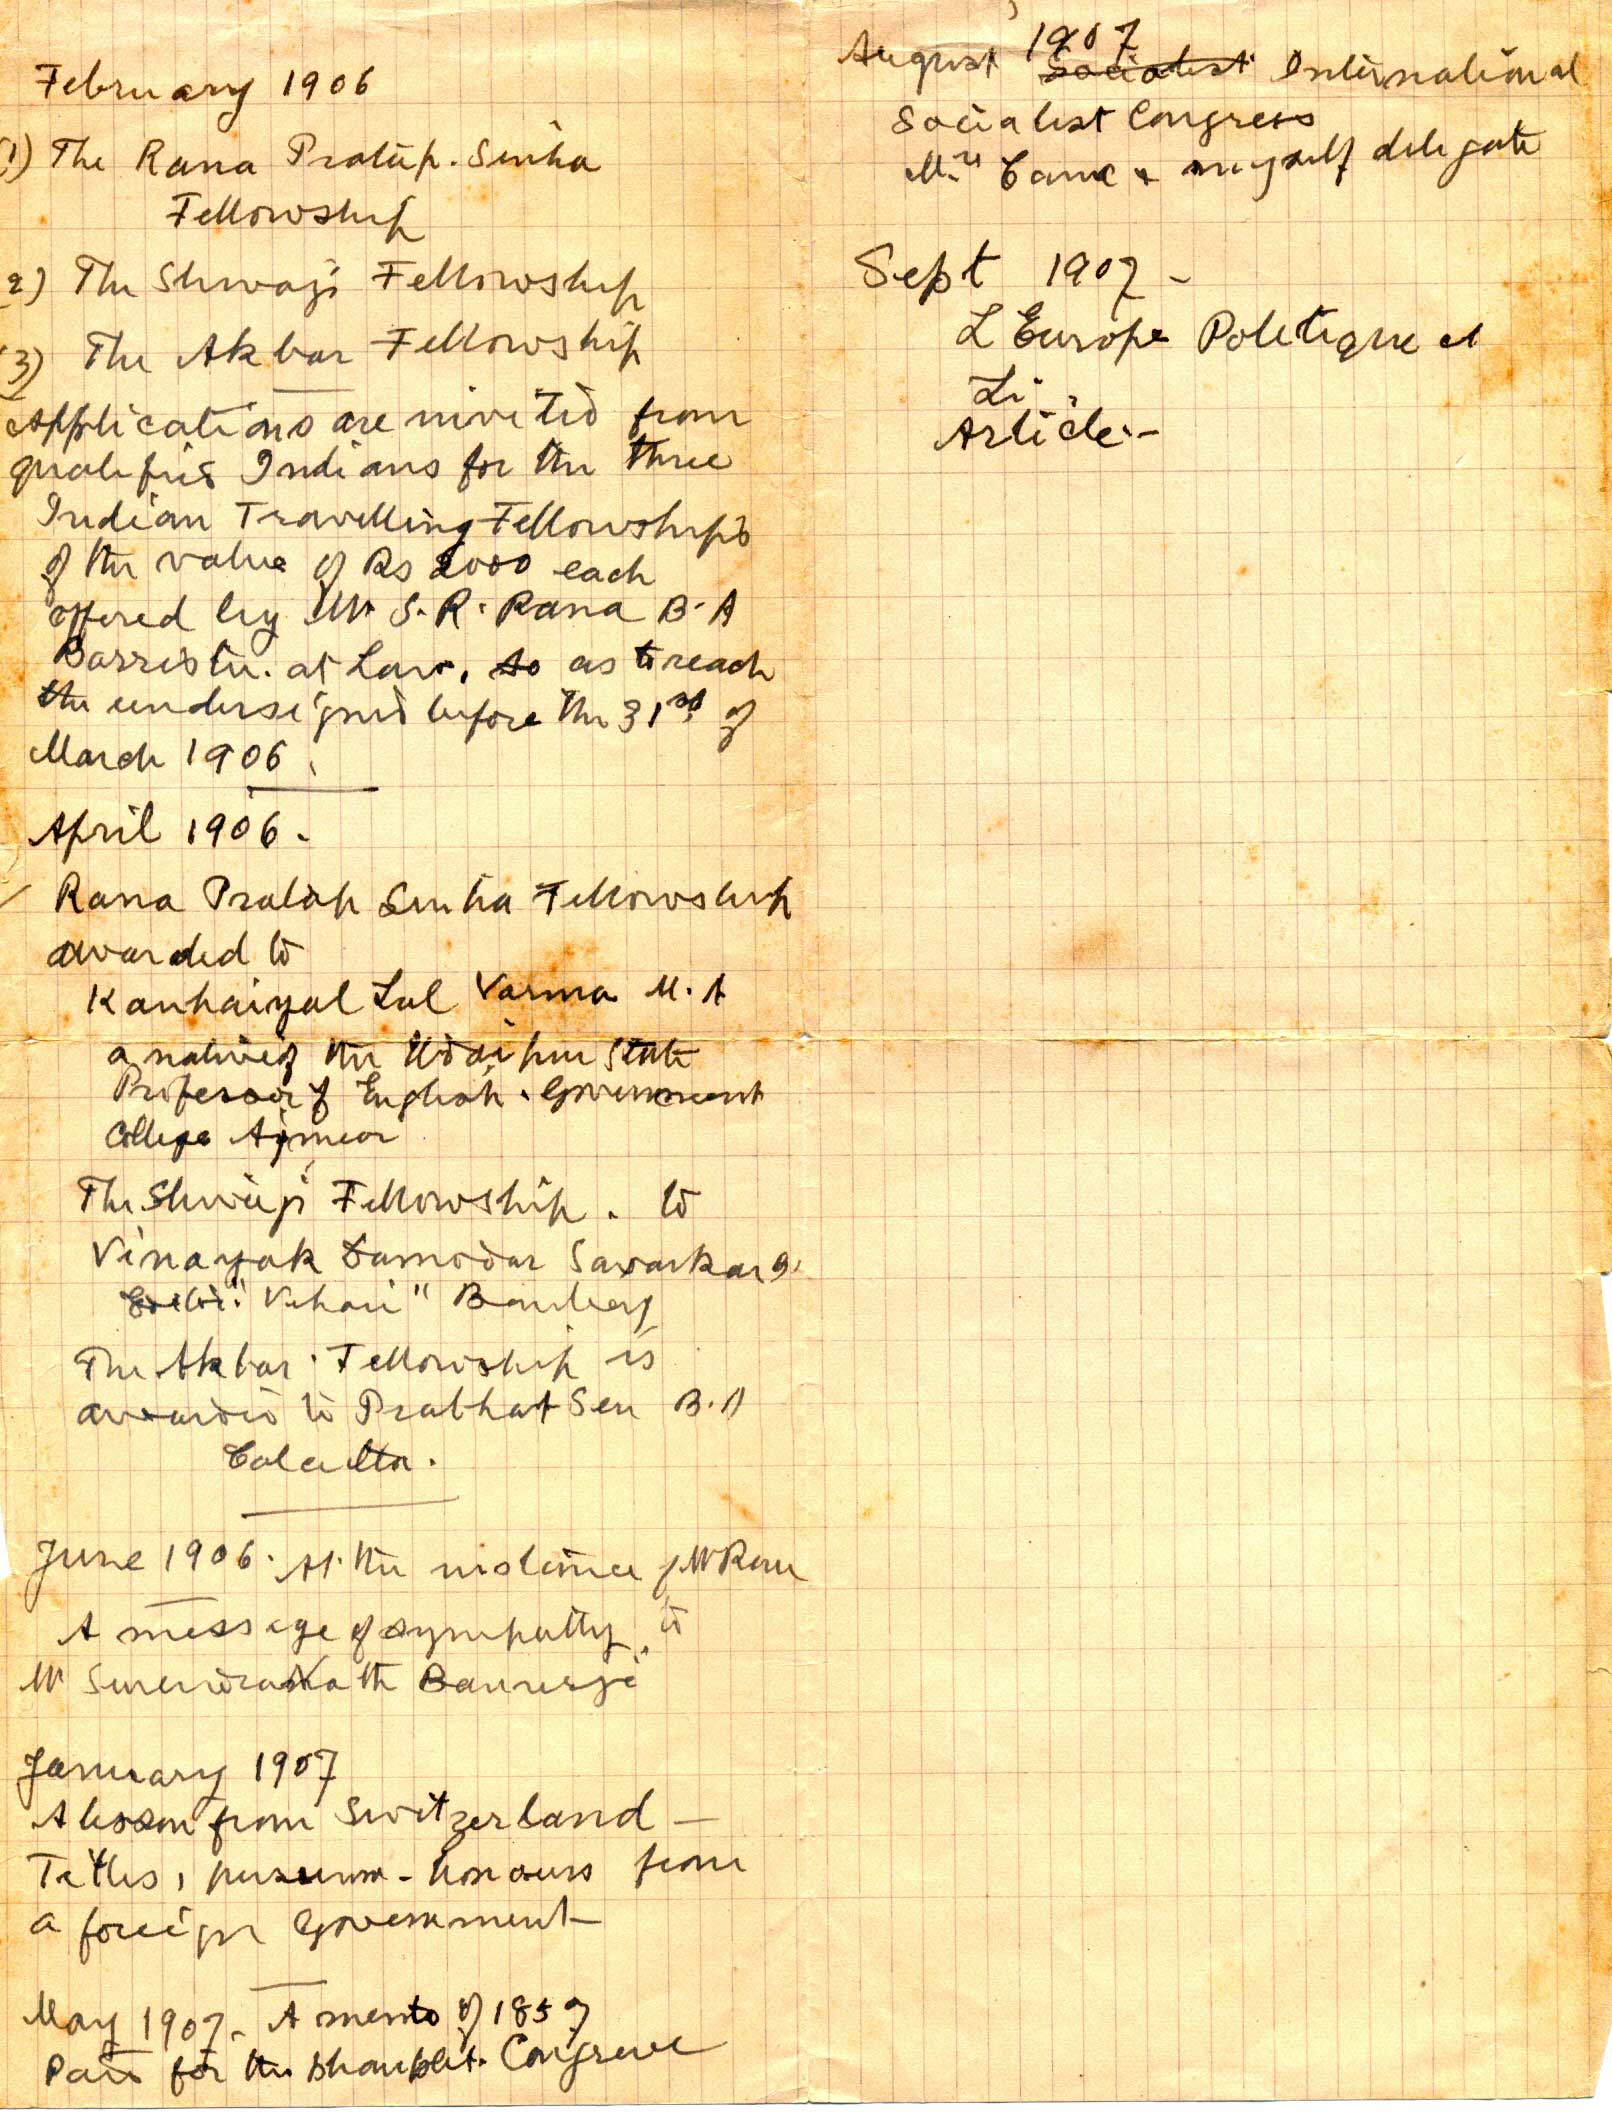 February 1906
(1) The Rana Pratap. Sinha
Fellowship
2) The Shivaji Fellowship
(3) The Akbar Fellowship
Applications are invited from
qualified Indians for the three
Indian Travelling Fellowships
of the value of Rs 2000 each
offered by Mr S. R. Rana B. A
Barrister. at Law. so as to reach
the undersigned before the 31st of
March 1906.
April 1906.
Rana Pratap Sinha Fellowship
awarded to
Kanhaiyal Lal Varma M. A
a native of the Udaipur State
Professor of English. Government
College Ajmear
The Shivaji Fellowship. to
Vinayak Damodar Savarkar
"Vihari" Bombay
The Akbar. Fellowship is
awarded to Prabhat Sen B. A
Calcutta.
June 1906. At the instance of Mr Rana
A message of sympathy to
Mr SurendraNath Bannerji
January 1907
A lesson from Switzerland —
Titles, pension - honours from
a foreign Government
May 1907. A mento of 1857
Paid for the Congreve
August 1907 Socialist International
Socialist Congress
Mrs Cama & myself delegate
Sept 1907 -
L Europe Politique et
Li.
Article -